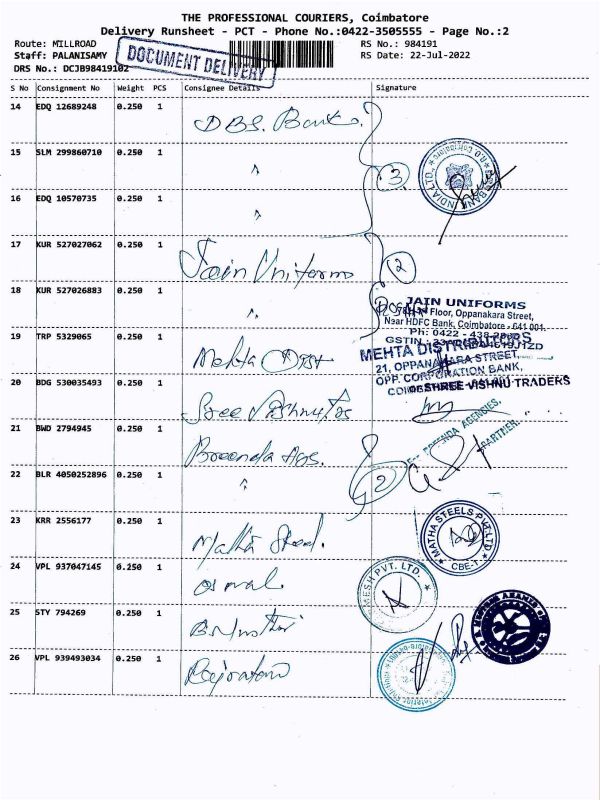 THE PROFESSIONAL COURIERS, Coimbatore
Delivery Runsheet - PCT - Phone No.:0422-3505555 - Page No.:2
Route: MILLROAD
RS No.: 984191
Staff: PALANISAMY
RS Date: 22-Jul-2022
DRS No.: DCJB98419102
DOCUMENT DELIVERY
S No Consignment No Weight PCS Consignee Details Signature
14 EDQ 12689248 0.250 1 DBS. Bank.
15 SLM 299860710 0.250 1 "
3
BANK INDIA LTD.
16 EDQ 10570735 0.250 1 "
17 KUR 527027062 0.250 1 Jain Uniforms
2
18 KUR 527026883 0.250 1 "
JAIN UNIFORMS
Floor, Oppanakara Street,
Near HDFC Bank, Coimbatore - 641 001.
Ph: 0422 - 438
GSTIN
19 TRP 5329065 0.250 1 Mehta Dist
MEHTA DISTRIBUTORS
21, OPPANAKARA STREET,
OPP. CORPORATION BANK,
20 BDG 530035493 0.250 1 Sree Vishnu Tds
SHREE VISHNU TRADERS
21 BWD 2794945 0.250 1
AGENCIES,
PARTNER.
22 BLR 4050252896 0.250 1 "
2
23 KRR 2556177 0.250 1 Matha Steel.
MATHA STEELS PVT.LTD
CBE-1
24 VPL 937047145 0.250 1
PVT. LTD.
25 STY 794269 0.250 1
26 VPL 939493034 0.250 1